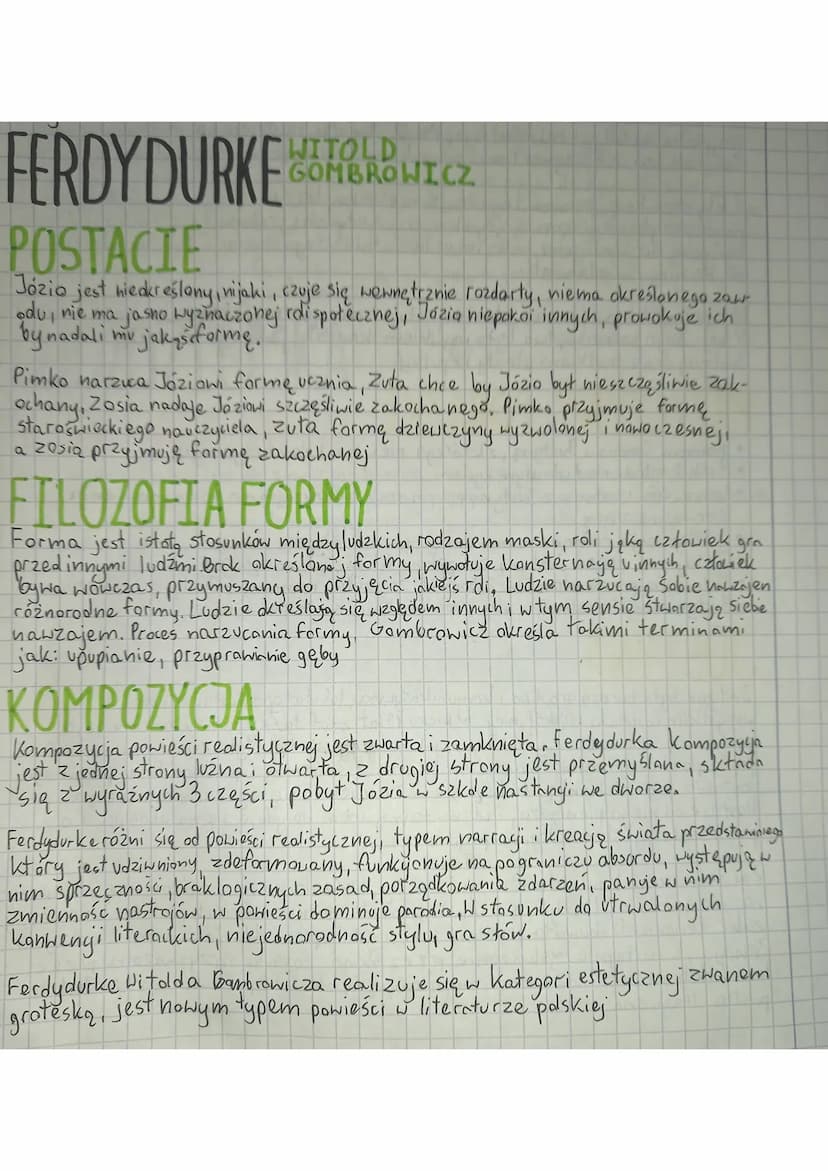 FERDYDURKE WITOLD
GOMBROWICZ
POSTACIE
Józio jest nieokreślony, nijaki, czuje się wewnętrznie rozdarty, niema określonego zaw-
odu, nie ma jasno wyznaczonej roli społecznej, Józio niepokoi innych, prowokuje ich
by nadali mu jakąś formę.
Pimko narzuca Józiowi formę ucznia, Zuta chce by Józio był nieszczęśliwie zak-
ochany, Zosia nadaje Józiowi szczęśliwie zakochanego. Pimko przyjmuje formę
staroświeckiego nauczyciela, Zuta formę dziewczyny wyzwolonej i nowoczesnej,
a Zosia przyjmują formę zakochanej
FILOZOFIA FORMY
Forma jest istotą stosunków międzyludzkich, rodzajem maski, roli jąką człowiek gra
przed innymi ludźmi. Brak określonej formy, wywołuje konsternację u innych, człowiek
bywa wówczas, przymuszany do przyjęcia jakiejś roli. Ludzie narzucają sobie nawzajem
różnorodne formy. Ludzie określają się względem innych i w tym sensie stwarzają siebie
nawzajem. Proces narzucania formy, Gombrowicz określa takimi terminami
jak: upupianie, przyprawianie gęby
KOMPOZYCJA
Kompozycja powieści realistycznej jest zwarta i zamknięta. Ferdydurka kompozycja
jest z jednej strony luźna i otwarta, z drugiej strony jest przemyślana, składa
się z wyraźnych 3 części, pobyt Józia w szkole na stancji we dworze.
Ferdydurke różni się od powieści realistycznej, typem narracji i kreacją świata przedstawionego
który jest udziwniony, zdeformowany, funkcjonuje na pograniczu absurdu, występują w
nim sprzeczności, brak logicznych zasad, porządkowania zdarzeń, panuje w nim
zmienność nastrojów, w powieści dominuje parodia, w stosunku do utrwalonych
konwencji literackich, niejednorodność stylu, gra słów.
Ferdydurke Witolda Gombrowicza realizuje się w kategori estetycznej zwanem
groteską, jest nowym typem powieści w literaturze polskiej